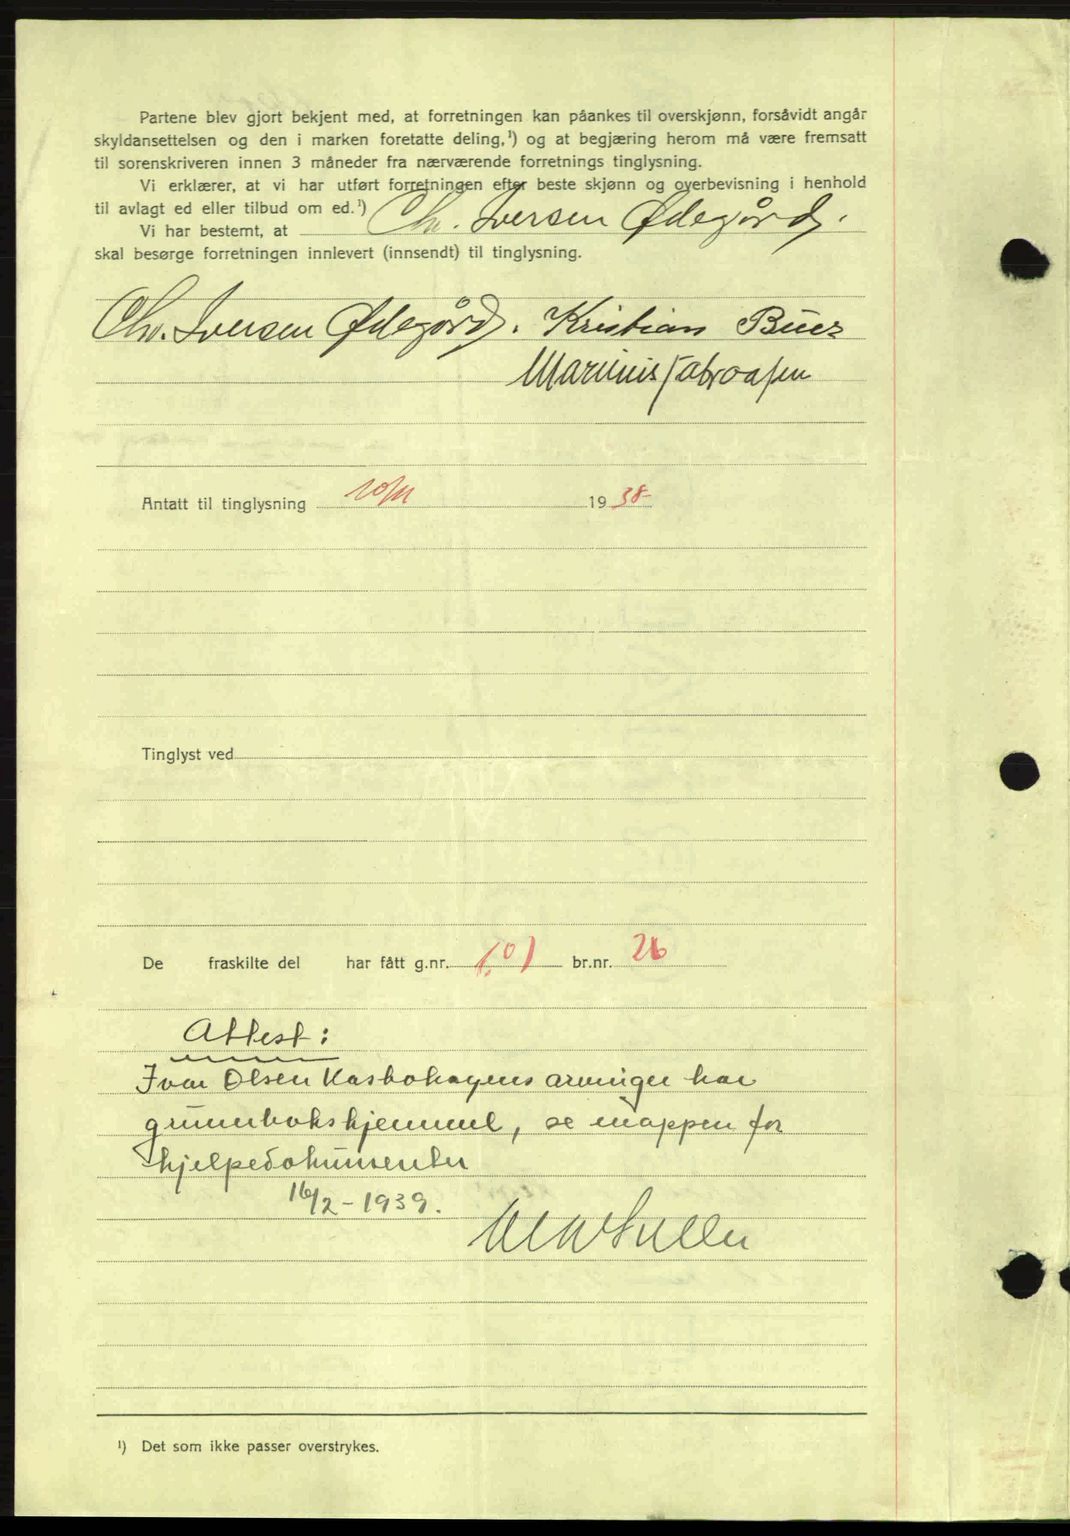 Partene blev gjort bekjent med, at forretningen kan påankes til overskjønn, forsåvidt angår
skyldansettelsen og den i marken foretatte deling,¹) og at begjæring herom må være fremsatt
til sorenskriveren innen 3 måneder fra nærværende forretnings tinglysning.
Vi erklærer, at vi har utført forretningen efter beste skjønn og overbevisning i henhold
til avlagt ed eller tilbud om ed.¹)
Vi har bestemt, at Chr. Iversen Ødegård.
skal besørge forretningen innlevert (innsendt) til tinglysning.
Chr. Iversen Ødegård. Kristian Buer
Marinius
Antatt til tinglysning 10/11 1938
Tinglyst ved
De fraskilte del har fått g.nr. 101 br.nr. 26
Attest:
Ivar Olsen Kasbohagens arvinger har
grunnbokshjemmel, se mappen for
hjelpedokumenter
16/2 - 1939.
¹) Det som ikke passer overstrykes.